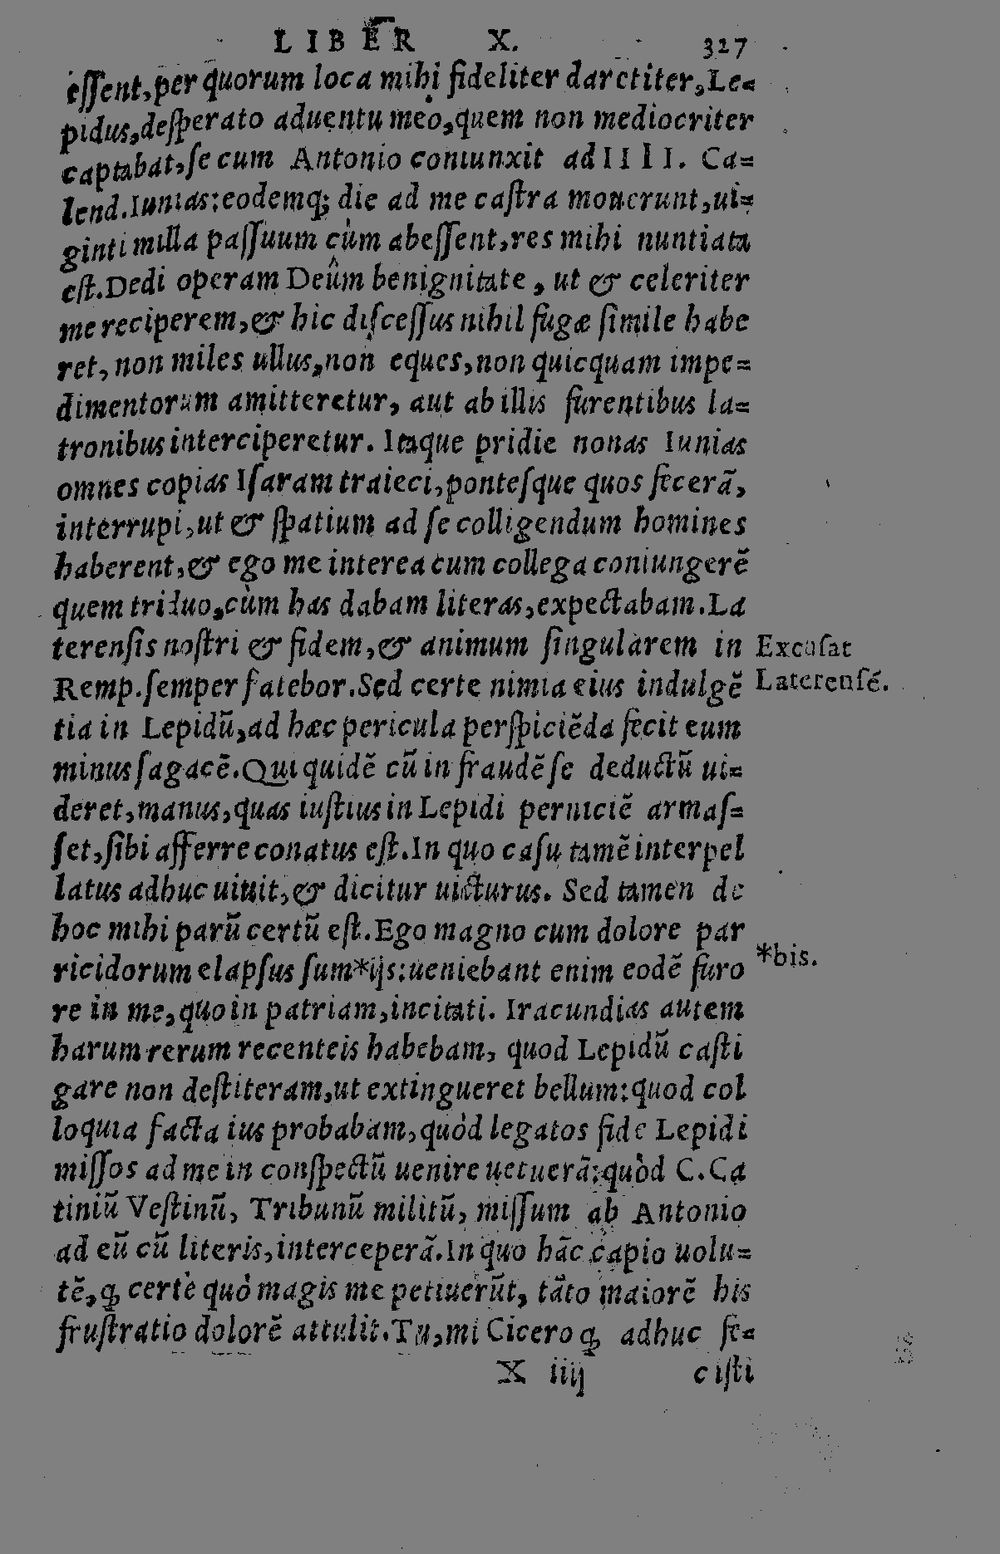 LIBER X. 327
essent, per quorum loca mihi fideliter daretiter, Le=
pidus, desperato aduentu meo, quem non mediocriter
captabat, se cum Antonio coniunxit ad IIII. Ca=
lend. Iunias: eodemq; die ad me castra mouerunt, ui=
ginti milla passuum cùm abessent, res mihi nuntiata
est. Dedi operam Deûm benignitate, ut & celeriter
me reciperem, & hic discessus nihil fugæ simile habe
ret, non miles ullus, non eques, non quicquam impe=
dimentorum amitteretur, aut ab illis furentibus la=
tronibus interciperetur. Itaque pridie nonas Iunias
omnes copias Isaram traieci, pontesque quos fecerã,
interrupi, ut & spatium ad se colligendum homines
haberent, & ego me interea cum collega coniungerẽ
quem triduo, cùm has dabam literas, expectabam. La
terensis nostri & fidem, & animum singularem in
Remp. semper fatebor. Sed certe nimia eius indulgẽ
Excusat
Laterensẽ.
tia in Lepidũ, ad hæc pericula perspiciẽda fecit eum
minus sagacẽ. Qui quidẽ cũ in fraudẽ se deductũ ui=
deret, manus, quas iustius in Lepidi perniciẽ armas=
set, sibi afferre conatus est. In quo casu tamẽ interpel
latus adhuc uiuit, & dicitur uicturus. Sed tamen de
hoc mihi parũ certũ est. Ego magno cum dolore par
ricidorum elapsus sum *ijs: ueniebant enim eodẽ furo
*bis.
re in me, quo in patriam, incitati. Iracundias autem
harum rerum recenteis habebam, quod Lepidũ casti
gare non destiteram, ut extingueret bellum: quod col
loquia facta ius probabam, quòd legatos fide Lepidi
missos ad me in conspectũ uenire uetuerã: quòd C. Ca
tiniũ Vestinũ, Tribunũ militũ, missum ab Antonio
ad eũ cũ literis, interceperã. In quo hãc capio uolu=
tẽ, q; certè quò magis me petiuerũt, tãto maiorẽ his
frustratio dolorẽ attulit. Tu, mi Cicero q; adhuc fe=
X iiij cisti